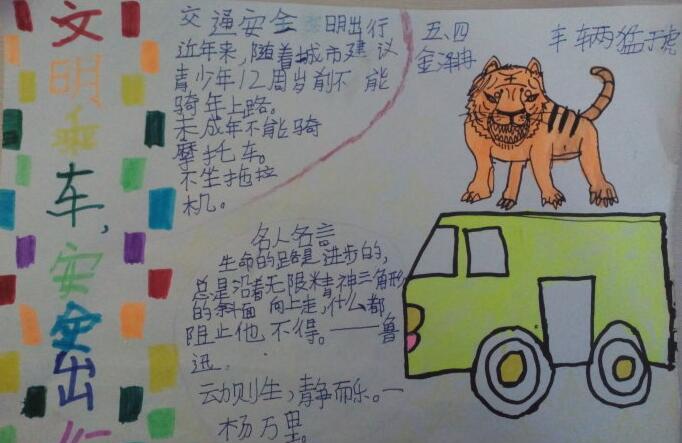 文明乘车,安全出行
交通安全文明出行
近年来,随着城市建议
青少年12周岁前不能
骑车上路。
未成年不能骑
摩托车。
不坐拖拉
机。
五、四
车辆两猛于虎
名人名言
生命的路是进步的,
总是沿着无限精神三角形
的斜面向上走,什么都
阻止他不得。——鲁
迅.
动则生,静而乐。一
杨万里。